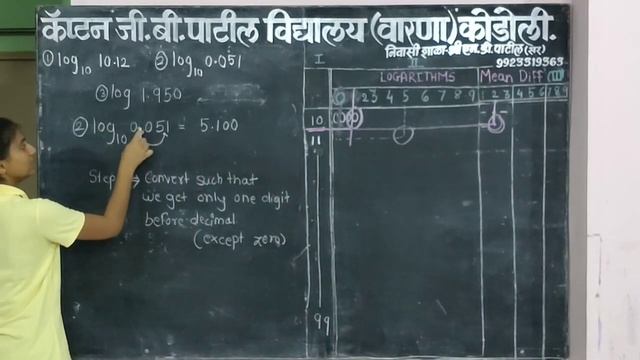 कॅप्टन जी.बी.पाटील विद्यालय (वारणा) कोडोली.
निवासी शाळा-
9923519363
① log₁₀ 10.12 ② log₁₀ 0.051
③ log 1.950
② log₁₀ 0.051 = 5.100
Step → Convert such that
we get only one digit
before decimal
(except zero)
I II III
LOGARITHMS Mean Diff
0 1 2 3 4 5 6 7 8 9 1 2 3 4 5 6 7 8 9
10
11
99